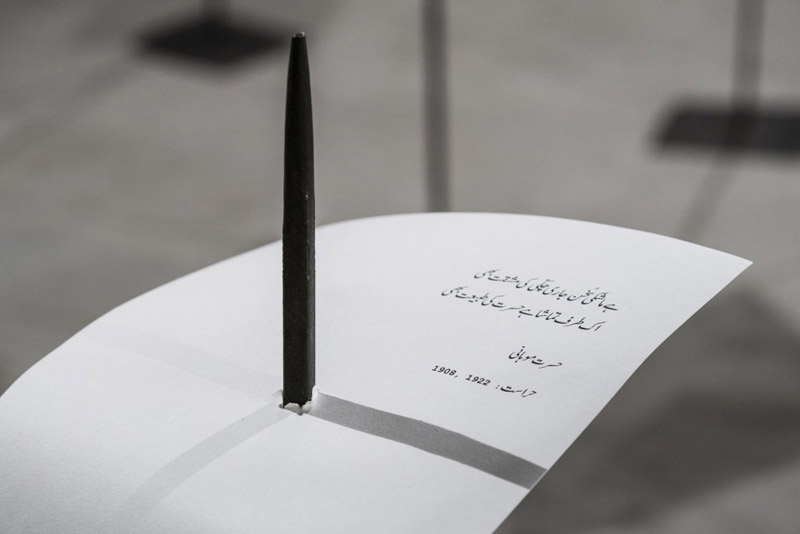 ہے مشقِ سخن جاری چکّی کی مشقت بھی
اک طرفہ تماشا ہے حسرت کی طبیعت بھی
حسرت موہانی
حراست: 1908, 1922